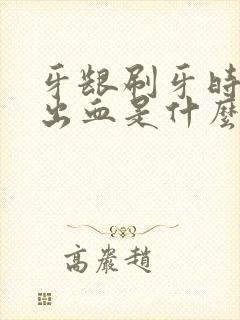 牙龈刷牙时
出血是什麼
高岩趙